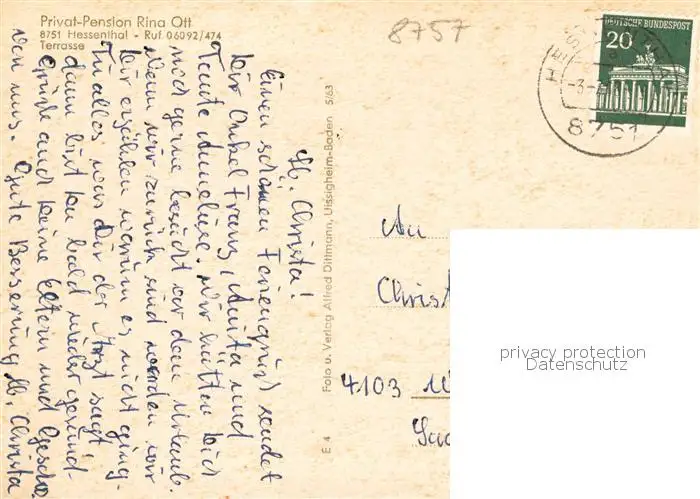 Privat-Pension Rina Ott
8751 Hessenthal - Ruf 06092/474
Terrasse
8757
DEUTSCHE BUNDESPOST
20
8751
Lb. Christa!
Einen schönen Feriengruß sendet
Dir Onkel Franz, Anita und
Tante Anneliese. Wir hätten Dich
noch gerne besucht vor dem Urlaub.
Wenn wir zurück sind werden wir
Dir erzählen warum es nicht ging.
Tu alles was Dir der Arzt sagt
dann bist Du bald wieder gesund.
Grüße auch Deine Eltern und Geschw.
von uns. Gute Besserung lb. Christa
Foto u. Verlag Alfred Dittmann, Uissigheim-Baden 5/63
E 4
An
Christ
4103
privacy protection
Datenschutz